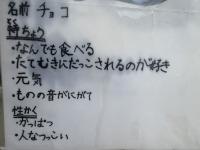 名前 チョコ
とく
特ちょう
・なんでも食べる
・たてむきにだっこされるのが好き
・元気
・ものの音がにがて
性かく
・かっぱつ
・人なつっこい